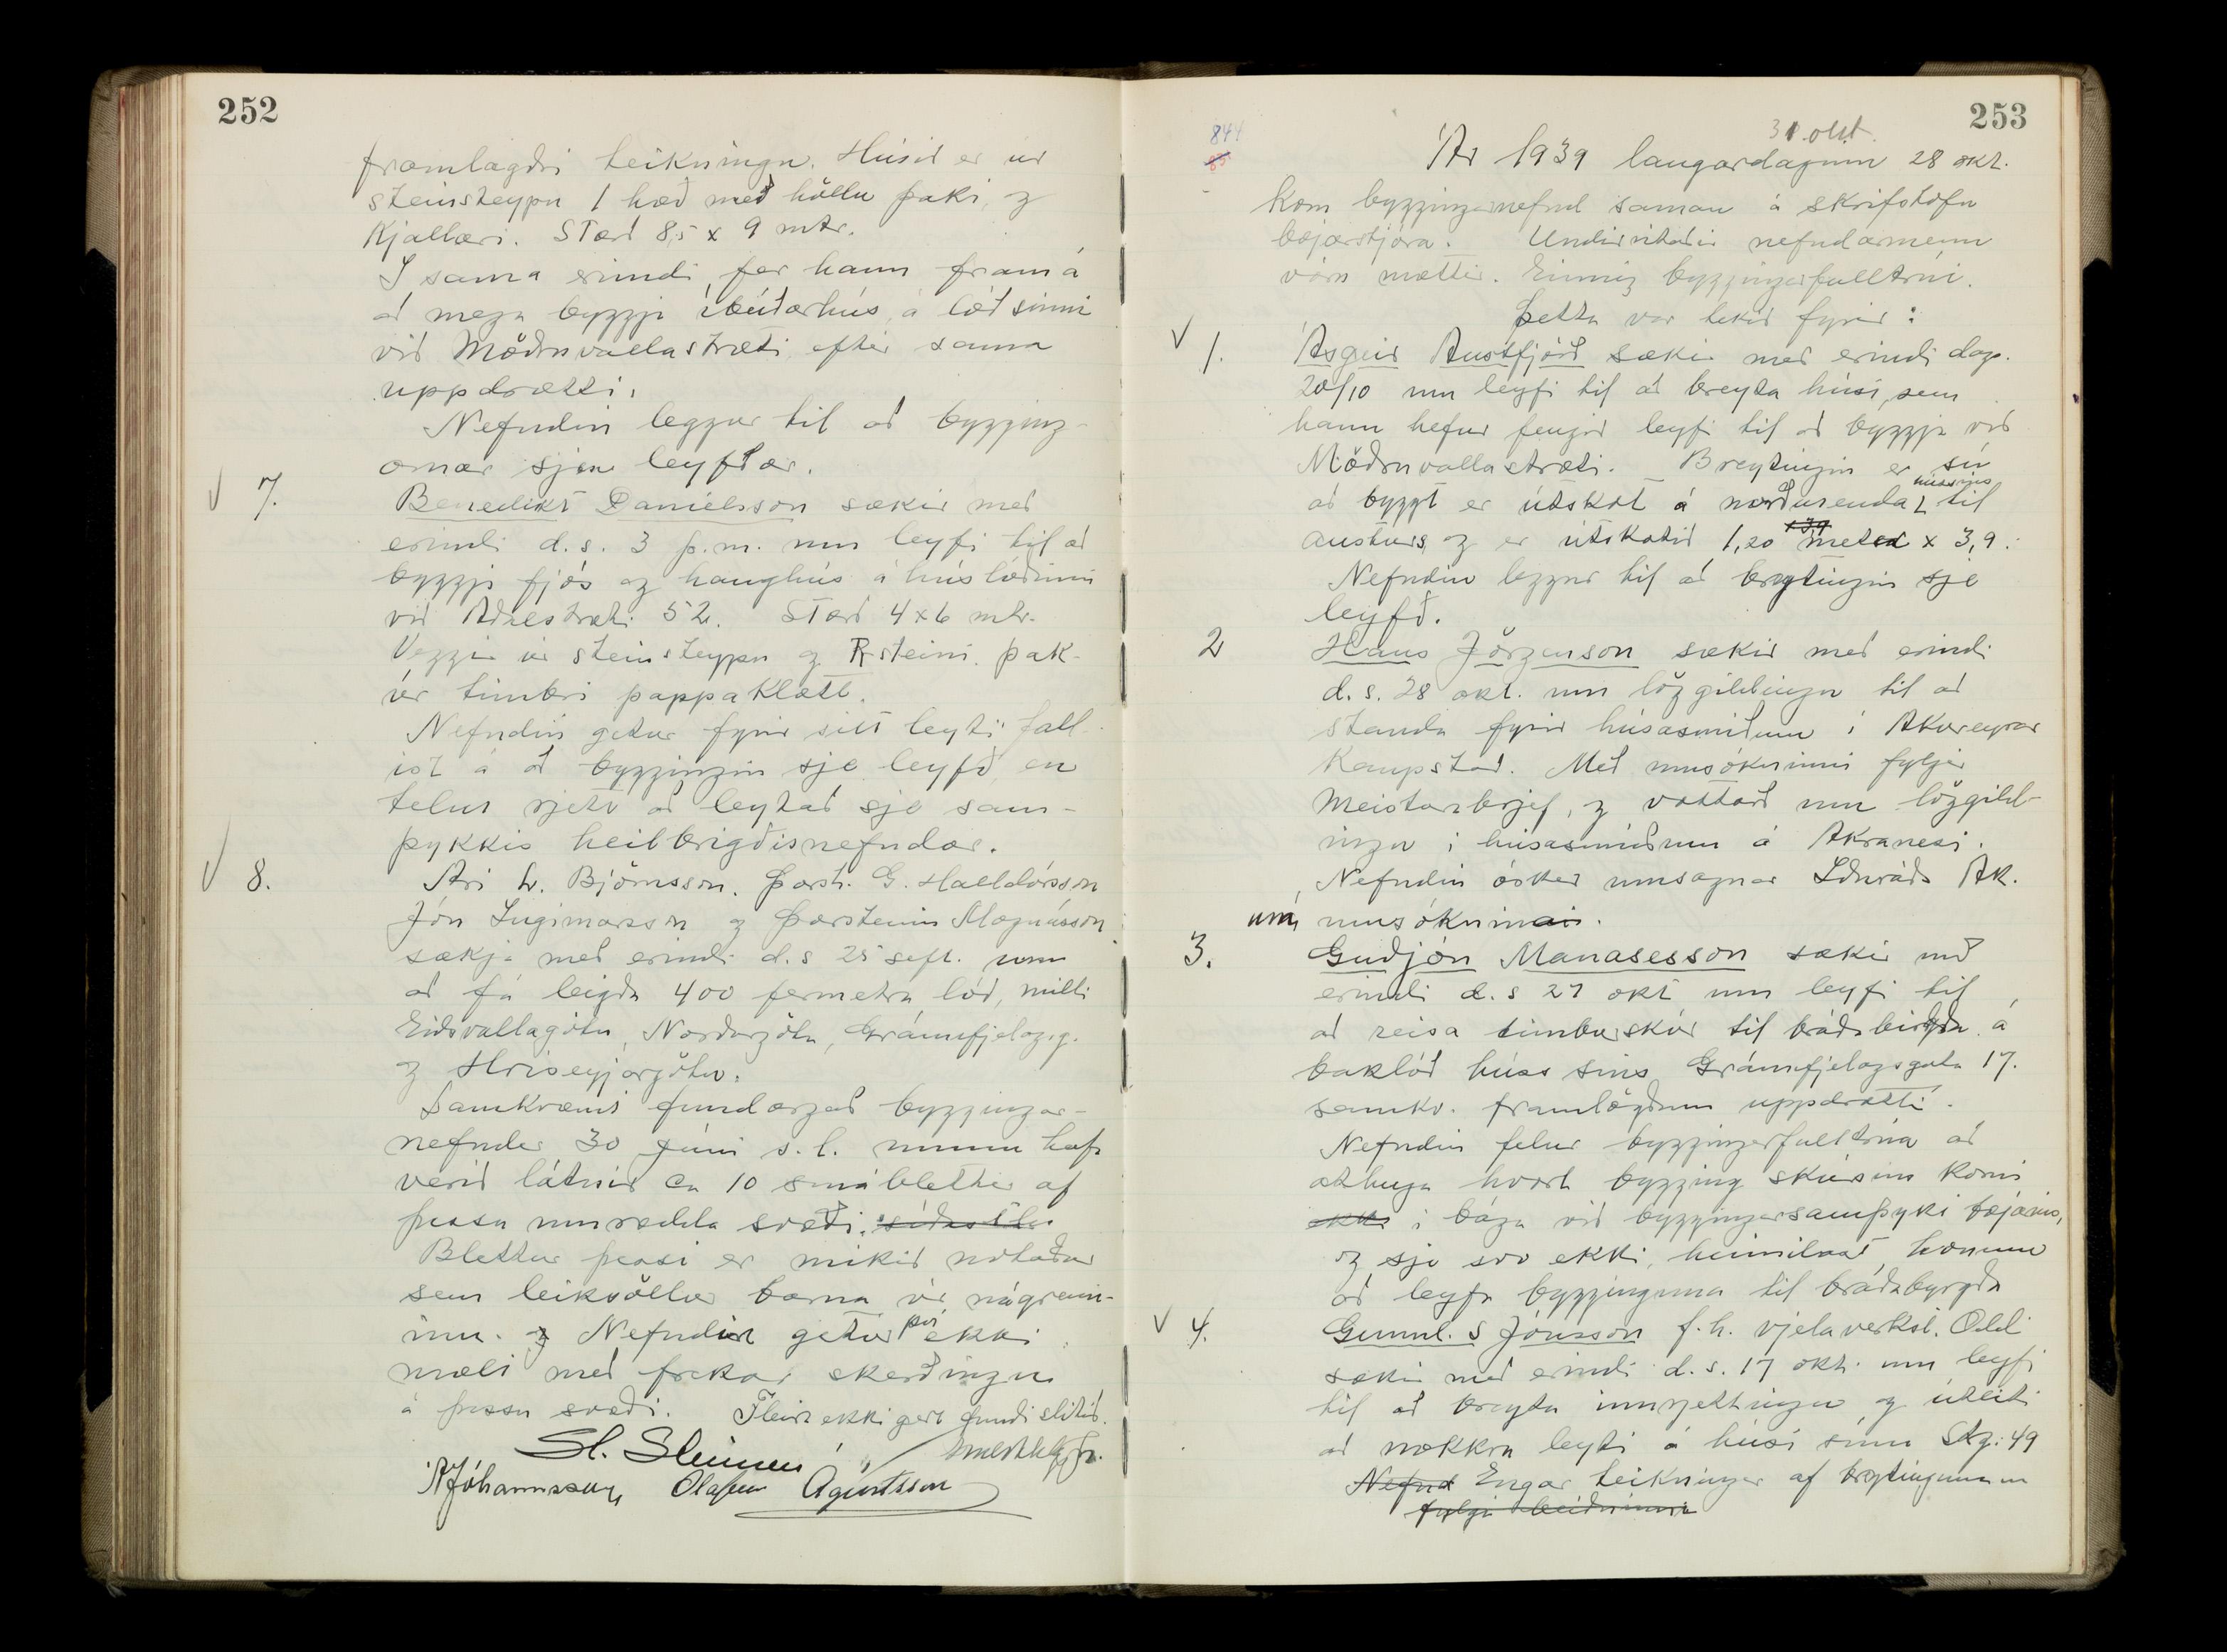 252
framlagðri teikningu. Húsið er úr
steinsteypu 1 hæð með höllu þaki, og
Kjallari. Stærð 8,5 x 9 mtr.
Í sama erindi, fer hann fram á
að mega byggja íbúðarhús á lóð sinni
við Möðruvallastræti eftir sama
uppdrætti.
Nefndin leggur til að bygging-
arnar sjeu leyfðar.
V 7. Benedikt Daníelsson sækir með
erindi d.s. 3 þ.m. um leyfi til að
byggja fjós og haughús á húslóðinni
við Aðalstræti 52. Stærð 4x6 mtr.
Veggir úr steinsteypu og R steini. þak-
úr timbri pappaklætt.
Nefndin getur fyrir sitt leyti fall-
ist á að byggingin sje leyfð, en
telur rjett að leytað sje sam-
þykkis heilbrigðisnefndar.
V 8. Ari L. Björnsson. Þorst. G. Halldórsson
Jón Ingimarsson og Þorsteinn Magnússon
sækja með erindi d.s 25 sept. um
að fá leigða 400 fermetra lóð, milli
Eiðsvallagötu, Norðurgötu, Gránufjelag.g.
og Hríseyjargötu.
Samkvæmt fundargerð bygginga-
nefndar 30 júní s.l. munu hafa
verið látnir ca 10 smáblettir af
þessu umrædda svæði. síðastl.
Blettur þessi er mikið notaður
sem leikvöllur barna úr nágrenn-
inu. og Nefndin getur því ekki
mælt með frekari skerðingu
á þessu svæði. Fleira ekki gert fundi slitið.
St. Steinsen
A Jóhannsson Ólafur Ágústsson
253
844
85
31. okt.
Ár 1939 laugardaginn 28 okt.
kom bygginganefnd saman á skrifstofu
bæjarstjóra. Undirritaðir nefndarmenn
vóru mættir. Einnig byggingafulltrúi.
Þetta var tekið fyrir:
V 1. Ásgeir Austfjörð sækir með erindi dag.
20/10 um leyfi til að breyta húsi, sem
hann hefur fengið leyfi til að byggja við
Möðruvallastræti. Breytingin er sú
að byggt er útskot á norðurenda hússins til
austurs og er útskotið 1,20 x 3,9 meter x 3,9.
Nefndin leggur til að breytingin sje
leyfð.
2 Hans Jörgenson sækir með erindi
d.s. 28 okt. um löggildingu til að
standa fyrir húsasmíðum í Akureyrar
Kaupstað. Með umsókninni fylgir
Meistarabrjef, og vottorð um löggild-
ingu í húsasmíðum á Akranesi.
Nefndin óskar umsagnar Iðnráðs Ak.
um umsóknina.
3. Guðjón Manasesson sækir með
erindi d.s 27 okt um leyfi til
að reisa timburskúr til bráðabirgða á
baklóð húss síns Gránufjelagsgata 17.
samkv. framlögðum uppdrætti.
Nefndin felur byggingafulltrúa að
athuga hvort bygging skúrsins komi
ekki í bága við byggingasamþykt bæjarins,
og sje svo ekki, heimilast honum
að leyfa bygginguna til bráðabyrgða
V 4. Gunnl. S Jónsson f.h. vjelaverkst. Oddi
sækir með erindi d.s. 17 okt. um leyfi
til að breyta innrjettingu og útliti
að nokkru leyti á húsi sínu Stg: 49
Nefnd Engar teikningar af breytingunum
fylgja beiðninni